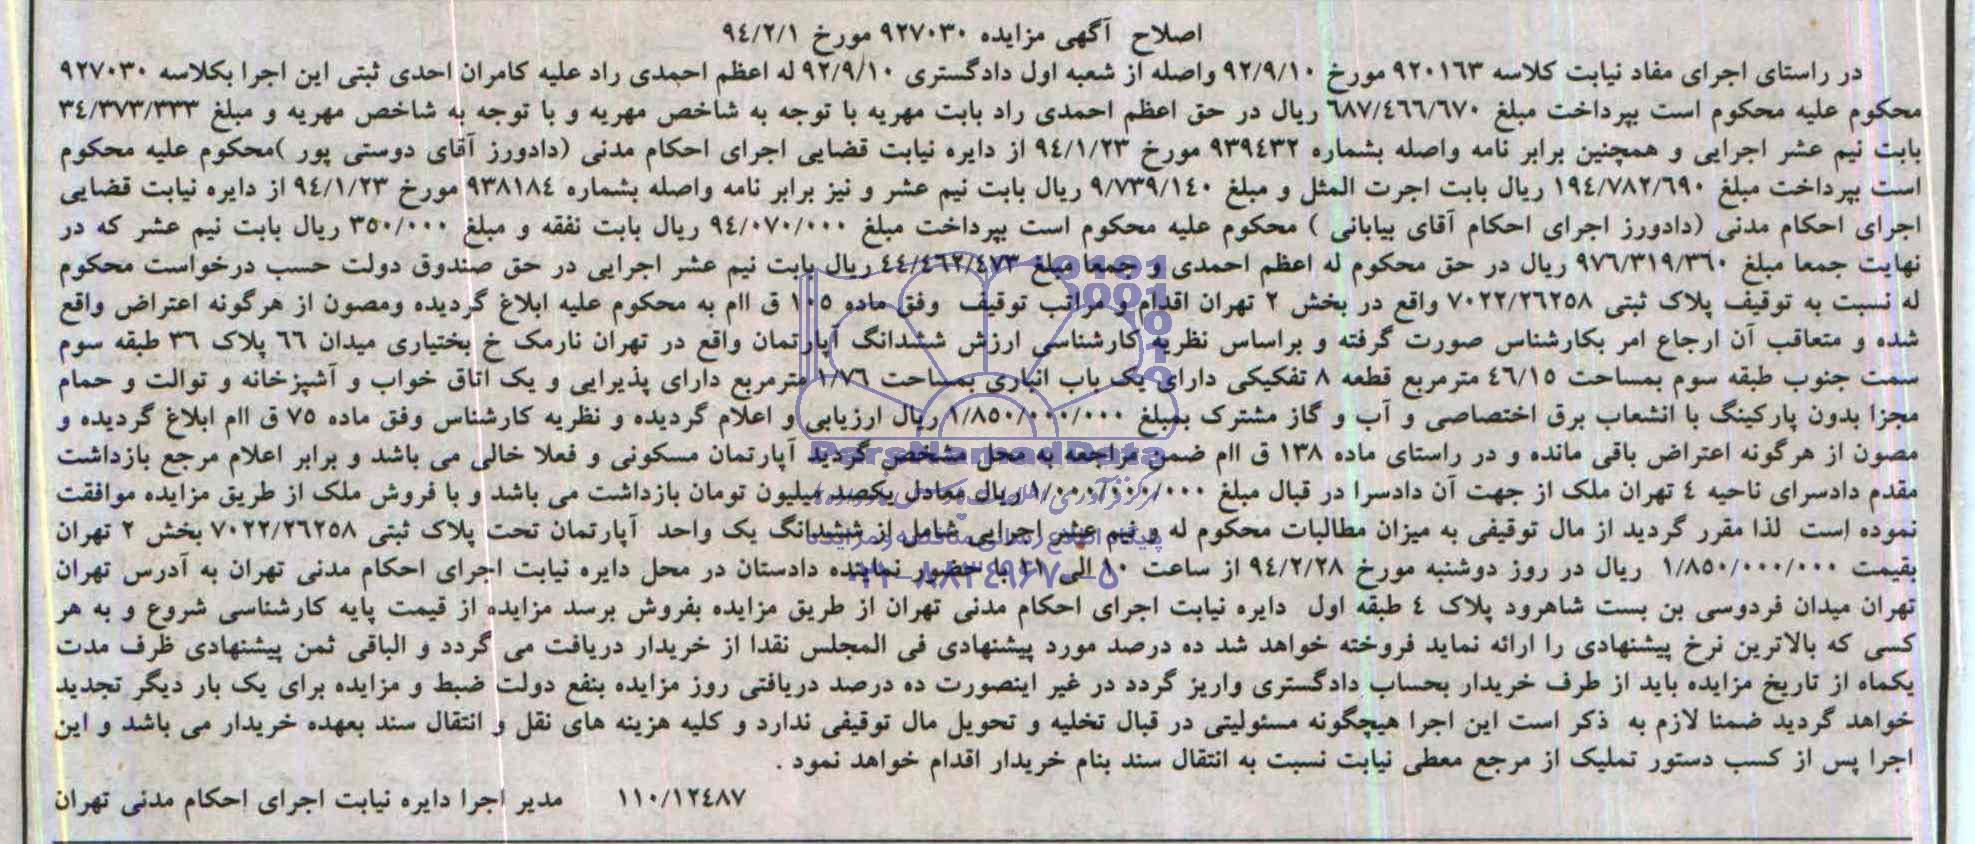 اصلاح آگهی مزایده ۹۲۷۰۳۰ مورخ ۹٤/۲/۱
در راستای اجرای مفاد نیابت کلاسه ۹۲۰۱٦۳ مورخ ۹۲/۹/۱۰ واصله از شعبه اول دادگستری ۹۲/۹/۱۰ له اعظم احمدی راد علیه کامران احدی ثبتی این اجرا بکلاسه ۹۲۷۰۳۰
محکوم علیه محکوم است بپرداخت مبلغ ٦۸۷/٤٦٦/٦۷۰ ریال در حق اعظم احمدی راد بابت مهریه با توجه به شاخص مهریه و با توجه به شاخص مهریه و مبلغ ۳٤/۳۷۳/۳۳۳
بابت نیم عشر اجرایی و همچنین برابر نامه واصله بشماره ۹۳۹٤۳۲ مورخ ۹٤/۱/۲۳ از دایره نیابت قضایی اجرای احکام مدنی (دادورز آقای دوستی پور )محکوم علیه محکوم
است بپرداخت مبلغ ۱۹٤/۷۸۲/٦۹۰ ریال بابت اجرت المثل و مبلغ ۹/۷۳۹/۱٤۰ ریال بابت نیم عشر و نیز برابر نامه واصله بشماره ۹۳۸۱۸٤ مورخ ۹٤/۱/۲۳ از دایره نیابت قضایی
اجرای احکام مدنی (دادورز اجرای احکام آقای بیابانی ) محکوم علیه محکوم است بپرداخت مبلغ ۹٤/۰۷۰/۰۰۰ ریال بابت نفقه و مبلغ ۳۵۰/۰۰۰ ریال بابت نیم عشر که در
نهایت جمعا مبلغ ۹۷٦/۳۱۹/۳٦۰ ریال در حق محکوم له اعظم احمدی و جمعا مبلغ ٤٤/٤٦۲/٤۷۳ ریال بابت نیم عشر اجرایی در حق صندوق دولت حسب درخواست محکوم
له نسبت به توقیف پلاک ثبتی ۷۰۲۲/۲٦۲۵۸ واقع در بخش ۲ تهران اقدام و مراتب توقیف وفق ماده ۱۰۵ ق اام به محکوم علیه ابلاغ گردیده ومصون از هرگونه اعتراض واقع
شده و متعاقب آن ارجاع امر بکارشناس صورت گرفته و براساس نظریه کارشناسی ارزش ششدانگ آپارتمان واقع در تهران نارمک خ بختیاری میدان ٦٦ پلاک ۳٦ طبقه سوم
سمت جنوب طبقه سوم بمساحت ٤٦/۱۵ مترمربع قطعه ۸ تفکیکی دارای یک باب انباری بمساحت ۱/۷٦ مترمربع دارای پذیرایی و یک اتاق خواب و آشپزخانه و توالت و حمام
مجزا بدون پارکینگ با انشعاب برق اختصاصی و آب و گاز مشترک بمبلغ ۱/۸۵۰/۰۰۰/۰۰۰ ریال ارزیابی و اعلام گردیده و نظریه کارشناس وفق ماده ۷۵ ق اام ابلاغ گردیده و
مصون از هرگونه اعتراض باقی مانده و در راستای ماده ۱۳۸ ق اام ضمن مراجعه به محل مشخص گردید آپارتمان مسکونی و فعلا خالی می باشد و برابر اعلام مرجع بازداشت
مقدم دادسرای ناحیه ٤ تهران ملک از جهت آن دادسرا در قبال مبلغ ۱/۰۰۰/۰۰۰/۰۰۰ ریال معادل یکصد میلیون تومان بازداشت می باشد و با فروش ملک از طریق مزایده موافقت
نموده است لذا مقرر گردید از مال توقیفی به میزان مطالبات محکوم له و نیم عشر اجرایی شامل از ششدانگ یک واحد آپارتمان تحت پلاک ثبتی ۷۰۲۲/۲٦۲۵۸ بخش ۲ تهران
بقیمت ۱/۸۵۰/۰۰۰/۰۰۰ ریال در روز دوشنبه مورخ ۹٤/۲/۲۸ از ساعت ۱۰ الی با حضور نماینده دادستان در محل دایره نیابت اجرای احکام مدنی تهران به آدرس تهران
تهران میدان فردوسی بن بست شاهرود پلاک ٤ طبقه اول دایره نیابت اجرای احکام مدنی تهران از طریق مزایده بفروش برسد مزایده از قیمت پایه کارشناسی شروع و به هر
کسی که بالاترین نرخ پیشنهادی را ارائه نماید فروخته خواهد شد ده درصد مورد پیشنهادی فی المجلس نقدا از خریدار دریافت می گردد و الباقی ثمن پیشنهادی ظرف مدت
یکماه از تاریخ مزایده باید از طرف خریدار بحساب دادگستری واریز گردد در غیر اینصورت ده درصد دریافتی روز مزایده بنفع دولت ضبط و مزایده برای یک بار دیگر تجدید
خواهد گردید ضمنا لازم به ذکر است این اجرا هیچگونه مسئولیتی در قبال تخلیه و تحویل مال توقیفی ندارد و کلیه هزینه های نقل و انتقال سند بعهده خریدار می باشد و این
اجرا پس از کسب دستور تملیک از مرجع معطی نیابت نسبت به انتقال سند بنام خریدار اقدام خواهد نمود .
۱۱۰/۱۲٤۸۷ مدیر اجرا دایره نیابت اجرای احکام مدنی تهران
ParsNamadData